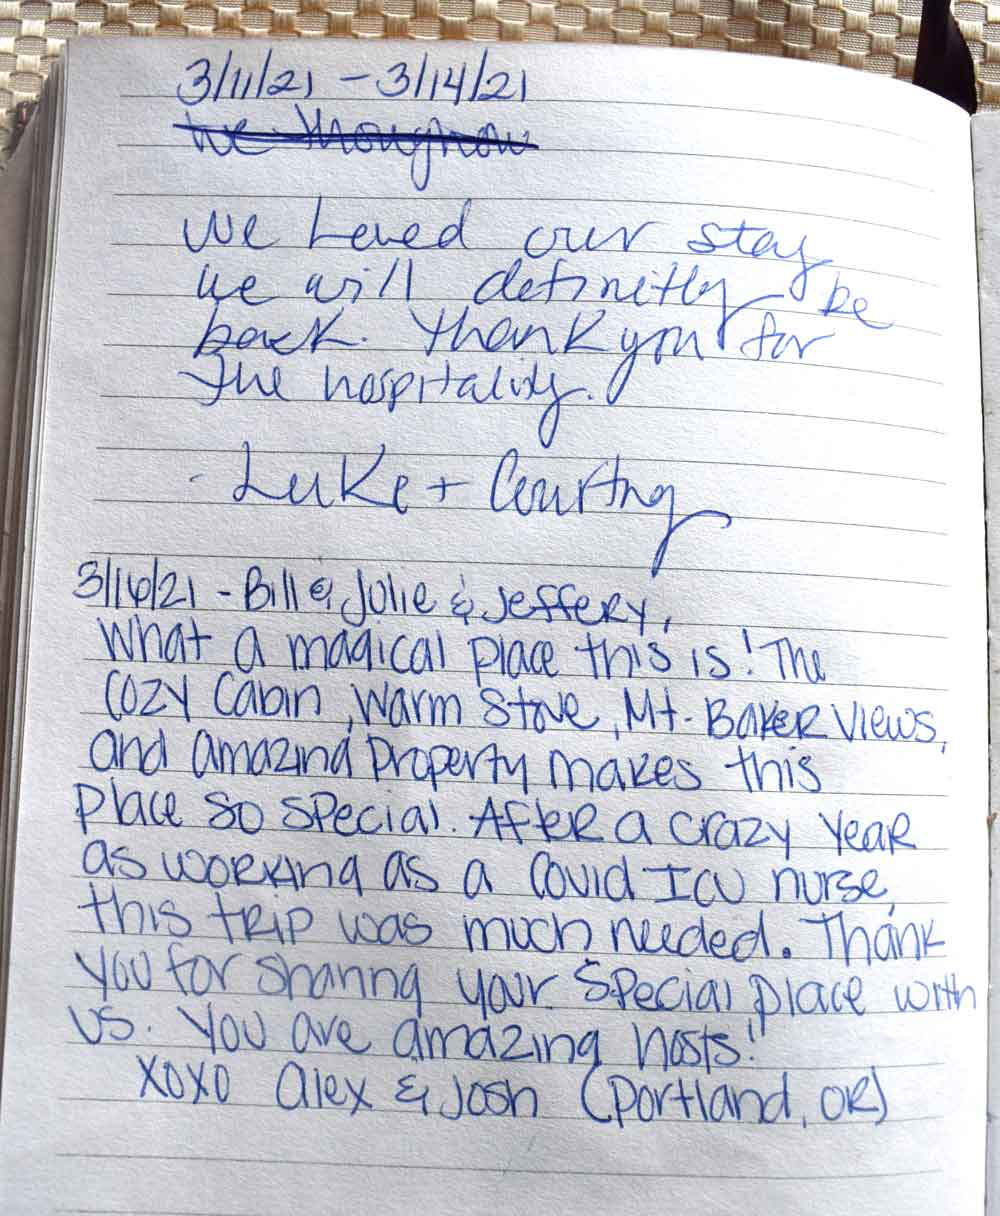 3/11/21 - 3/14/21
we
we loved our stay
we will definitly be
back. Thank you for
the hospitality.
- Luke + Courtney
3/16/21 - Bill & Julie & Jeffery,
What a magical place this is! The
cozy cabin, warm stove, Mt. Baker views,
and amazing property makes this
place so special. After a crazy year
as working as a Covid ICU nurse,
this trip was much needed. Thank
you for sharing your special place with
us. You are amazing hosts!
xoxo Alex & Josh (Portland, OR)